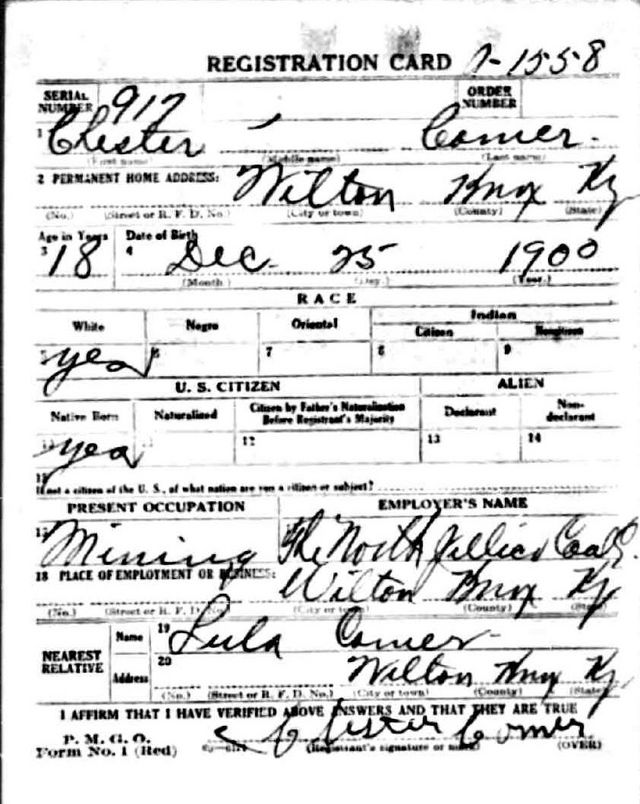 REGISTRATION CARD 7-1558
SERIAL NUMBER 917 ORDER NUMBER
1 Chester Comer
(First name) (Middle name) (Last name)
2 PERMANENT HOME ADDRESS: Wilton Knox Ky
(No.) (Street or R. F. D. No.) (City or town) (County) (State)
Age in Years Date of Birth
3 18 4 Dec. 25 1900
(Month) (Day.) (Year.)
RACE
White Negro Oriental Indian
Citizen Noncitizen
5 yes 6 7 8 9
U. S. CITIZEN ALIEN
Native Born Naturalized Citizen by Father's Naturalization Before Registrant's Majority Declarant Non-declarant
10 yes 11 12 13 14
15
If not a citizen of the U. S., of what nation are you a citizen or subject?
PRESENT OCCUPATION EMPLOYER'S NAME
Mining The North Jellico Coal C.
18 PLACE OF EMPLOYMENT OR BUSINESS: Wilton Knox Ky
(No.) (Street or R. F. D. No.) (City or town) (County) (State)
NEAREST RELATIVE Name 19 Lula Comer
Address 20 Wilton Knox Ky
(No.) (Street or R. F. D. No.) (City or town) (County) (State)
I AFFIRM THAT I HAVE VERIFIED ABOVE ANSWERS AND THAT THEY ARE TRUE
P. M. G. O.
Form No. 1 (Red) Chester Comer
(Registrant's signature or mark) (OVER)